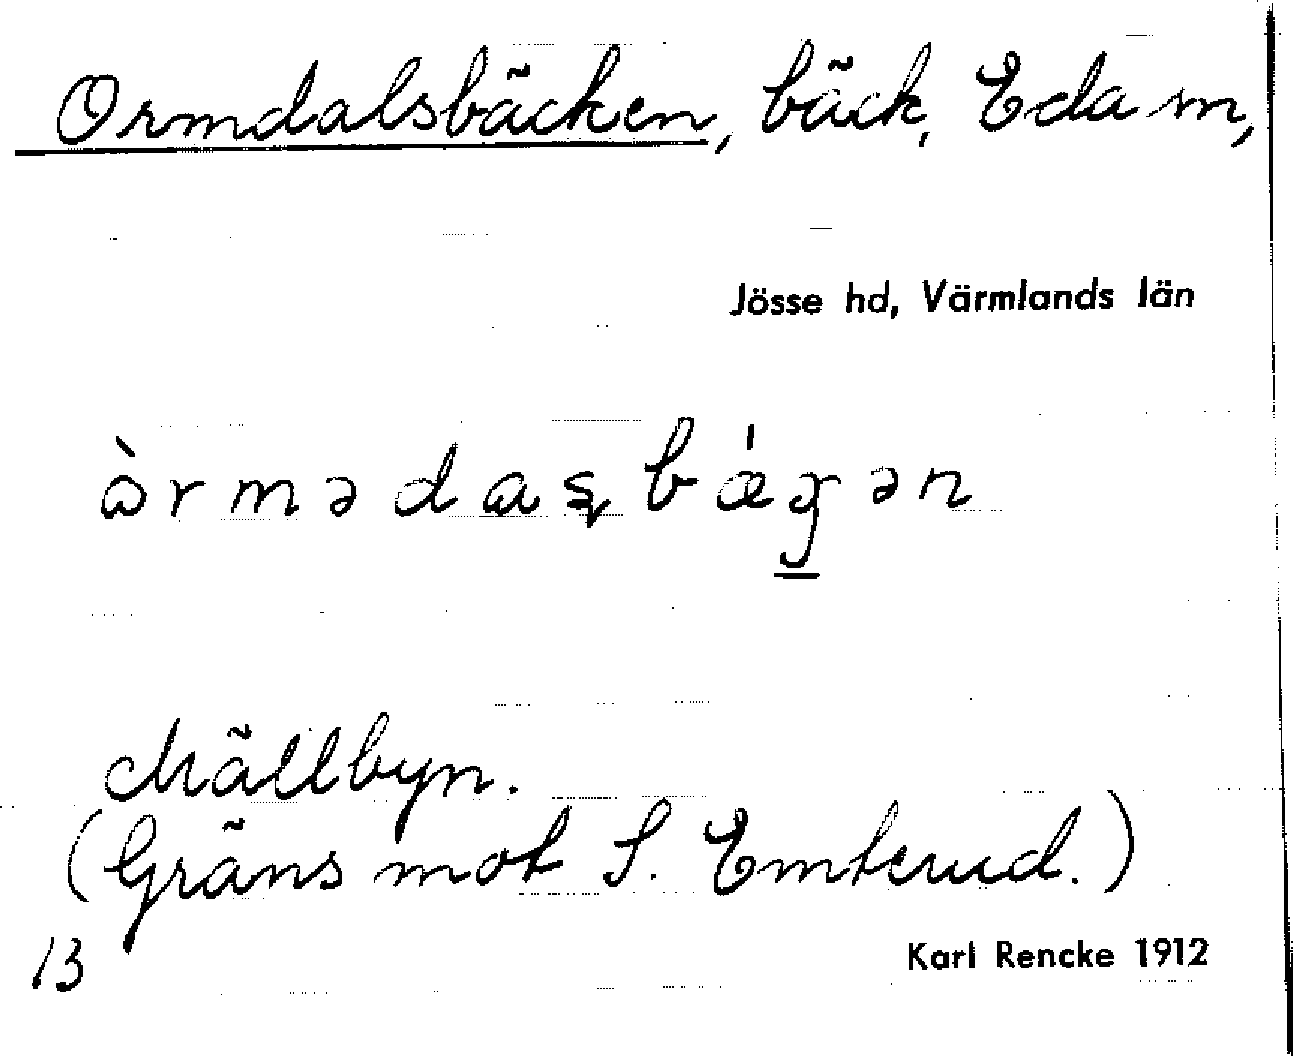 Ormdalsbäcken, bäck, Eda sn,
Jösse hd, Värmlands län
ɷ̀rmədaʂbǽgən
Mällbyn.
(Gräns mot S. Emterud.)
13
Karl Rencke 1912